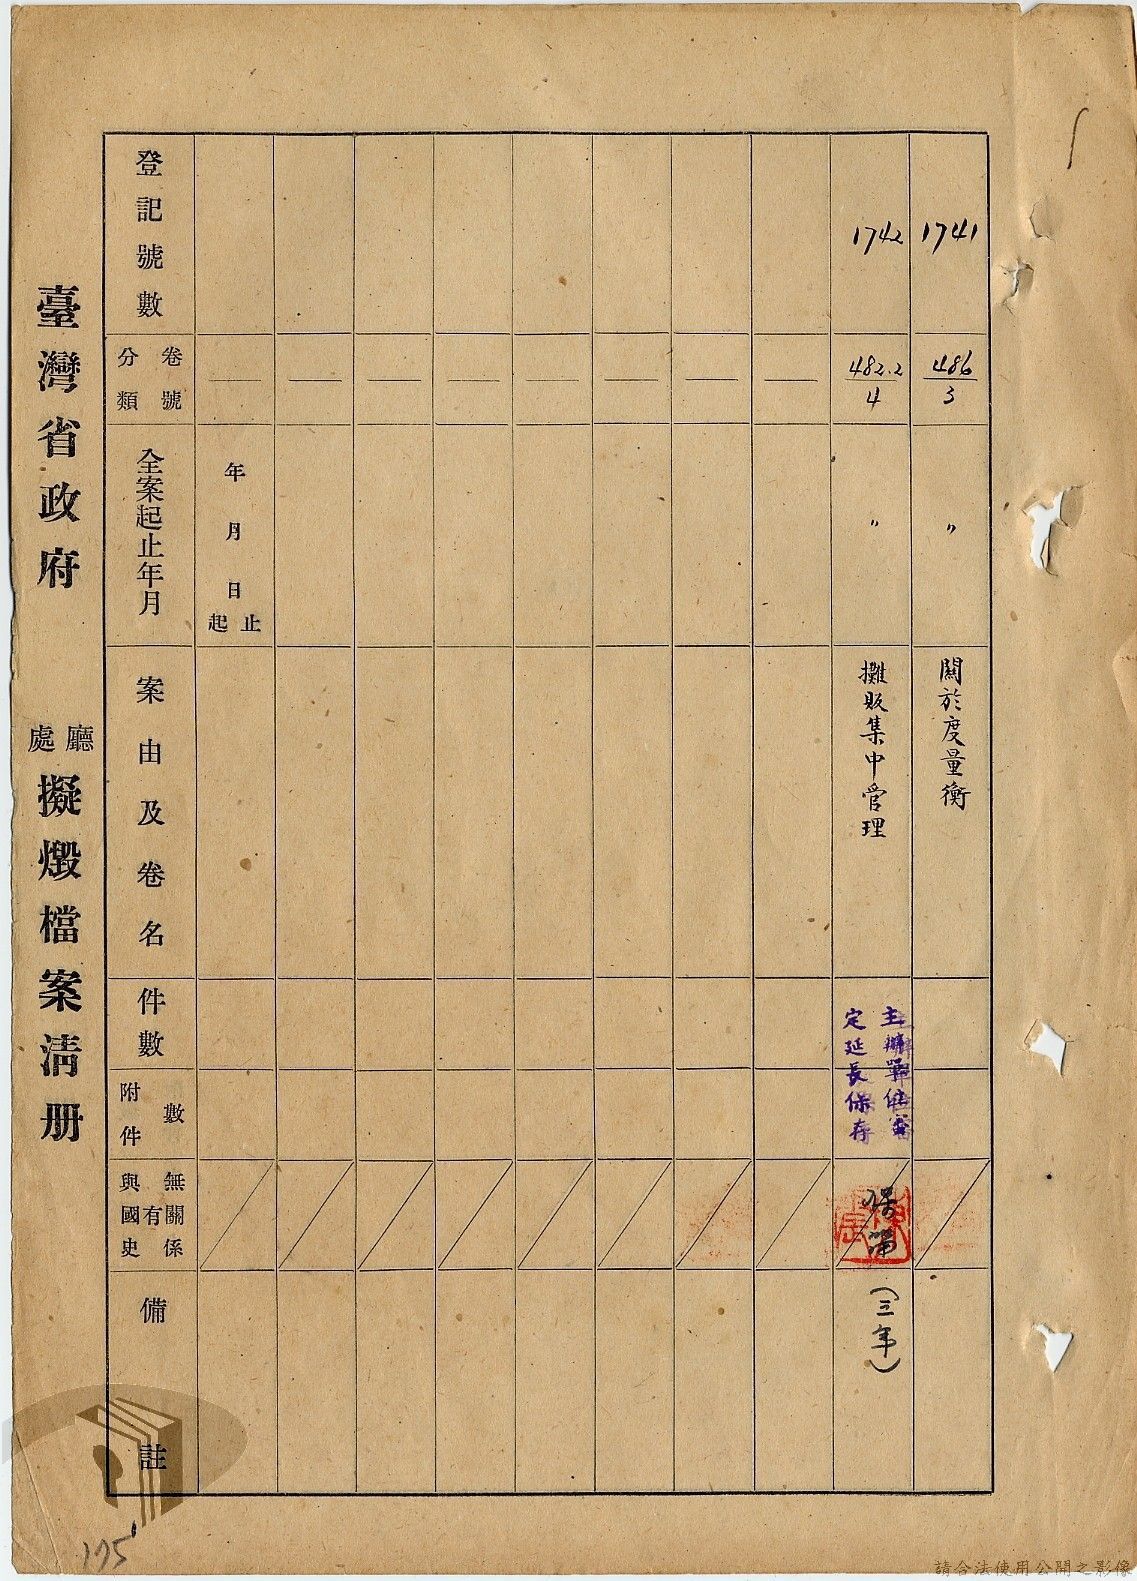 臺灣省政府 廳處擬燬檔案清册
登記號數
分類 卷號
全案起止年月
案由及卷名
件數
附件數
與國史有無關係
備註
年月日起止
1741
486
3
〃
關於度量衡
1742
482.2
4
〃
攤販集中管理
主辦單位審
定延長保存
保留
(三年)
175
請合法使用公開之影像